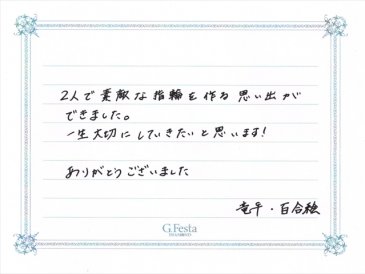 2人で素敵な指輪を作る思い出が
できました。
一生大切にしていきたいと思います!
ありがとうございました
竜平・百合絵
G.Festa